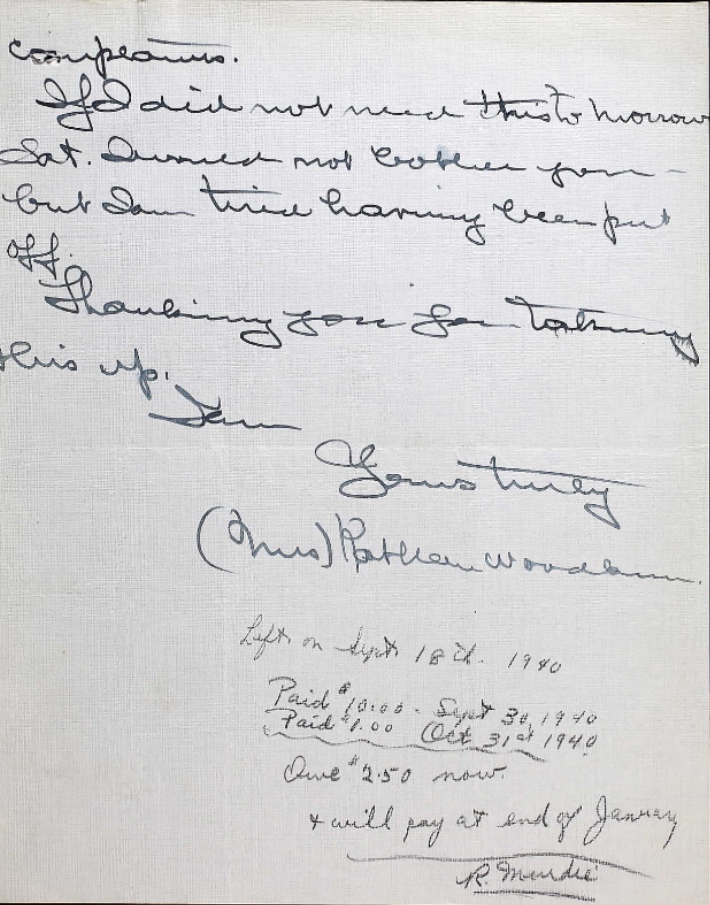 complaints.
If I did not need this to morrow
Sat. I would not bother you -
but I am tired having been put
off.
Thanking you for taking
this up.
I am
Yours truly
(Mrs) Kathleen Woodburn.
Left on Sept 18th. 1940
Paid $10.00 - Sept 30, 1940
Paid $1.00 Oct 31st 1940
Owe $2.50 now.
+ will pay at end of January
R. Murdie